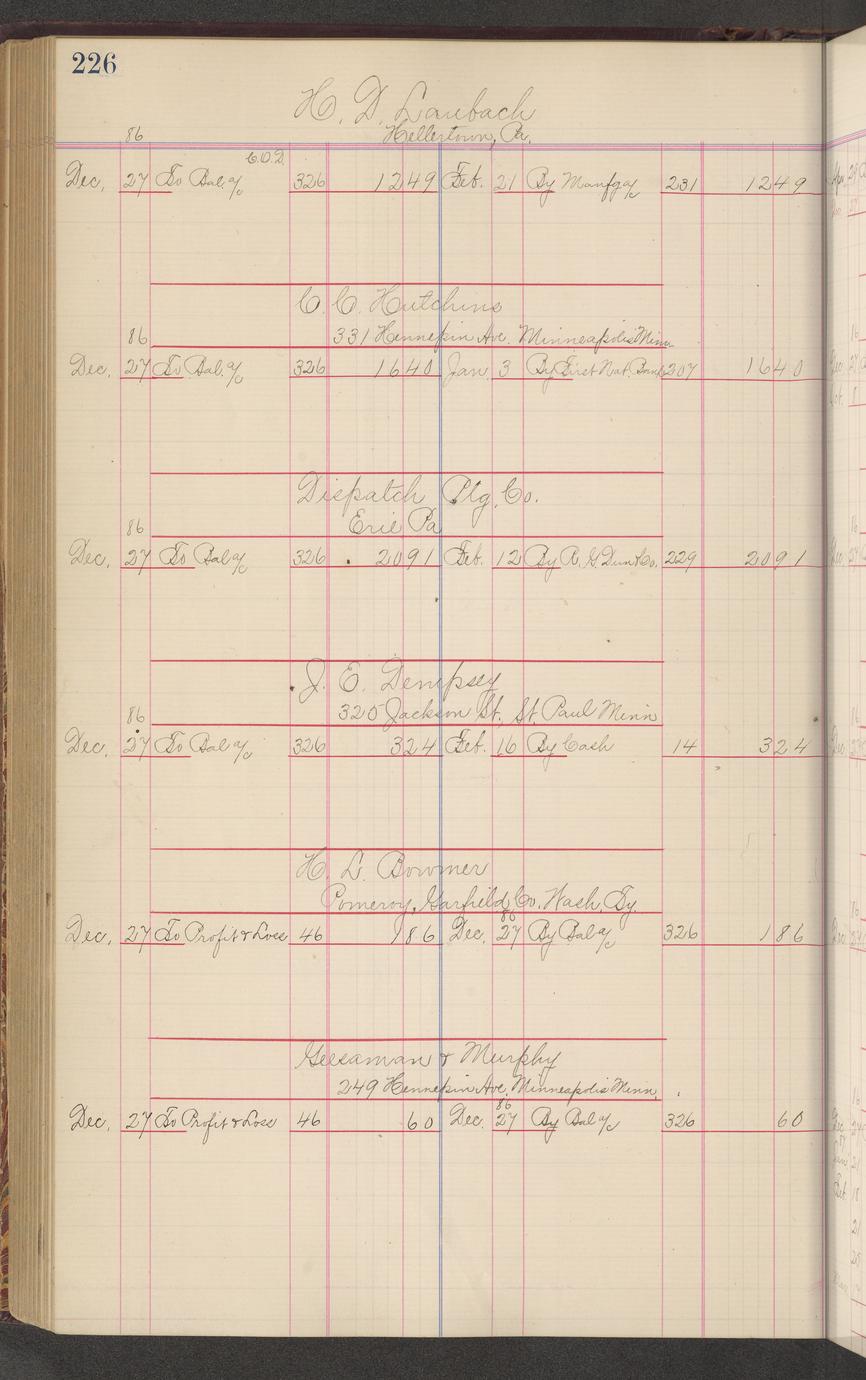 226
H. D. Laubach
Hellertown, Pa.
86
C.O.D.
Dec. 27 To Bal. a/c 326 1249 Feb. 21 By Manfg a/c 231 1249
C. C. Hutchins
331 Hennepin Ave. Minneapolis Minn
86
Dec. 27 To Bal. a/c 326 1640 Jan. 3 By First Nat. Bank 207 1640
Dispatch Ptg. Co.
Erie Pa
86
Dec. 27 To Bal a/c 326 2091 Feb. 12 By R. G. Dun & Co. 229 2091
J. E. Dempsey
325 Jackson St. St. Paul Minn
86
Dec. 27 To Bal a/c 326 324 Feb. 16 By Cash 14 324
H. L. Bowmer
Pomeroy, Garfield Co. Wash. Ty.
86
Dec. 27 To Profit & Loss 46 186 Dec. 27 By Bal a/c 326 186
Geesaman & Murphy
249 Hennepin Ave. Minneapolis Minn.
86
Dec. 27 To Profit & Loss 46 60 Dec. 27 By Bal a/c 326 60